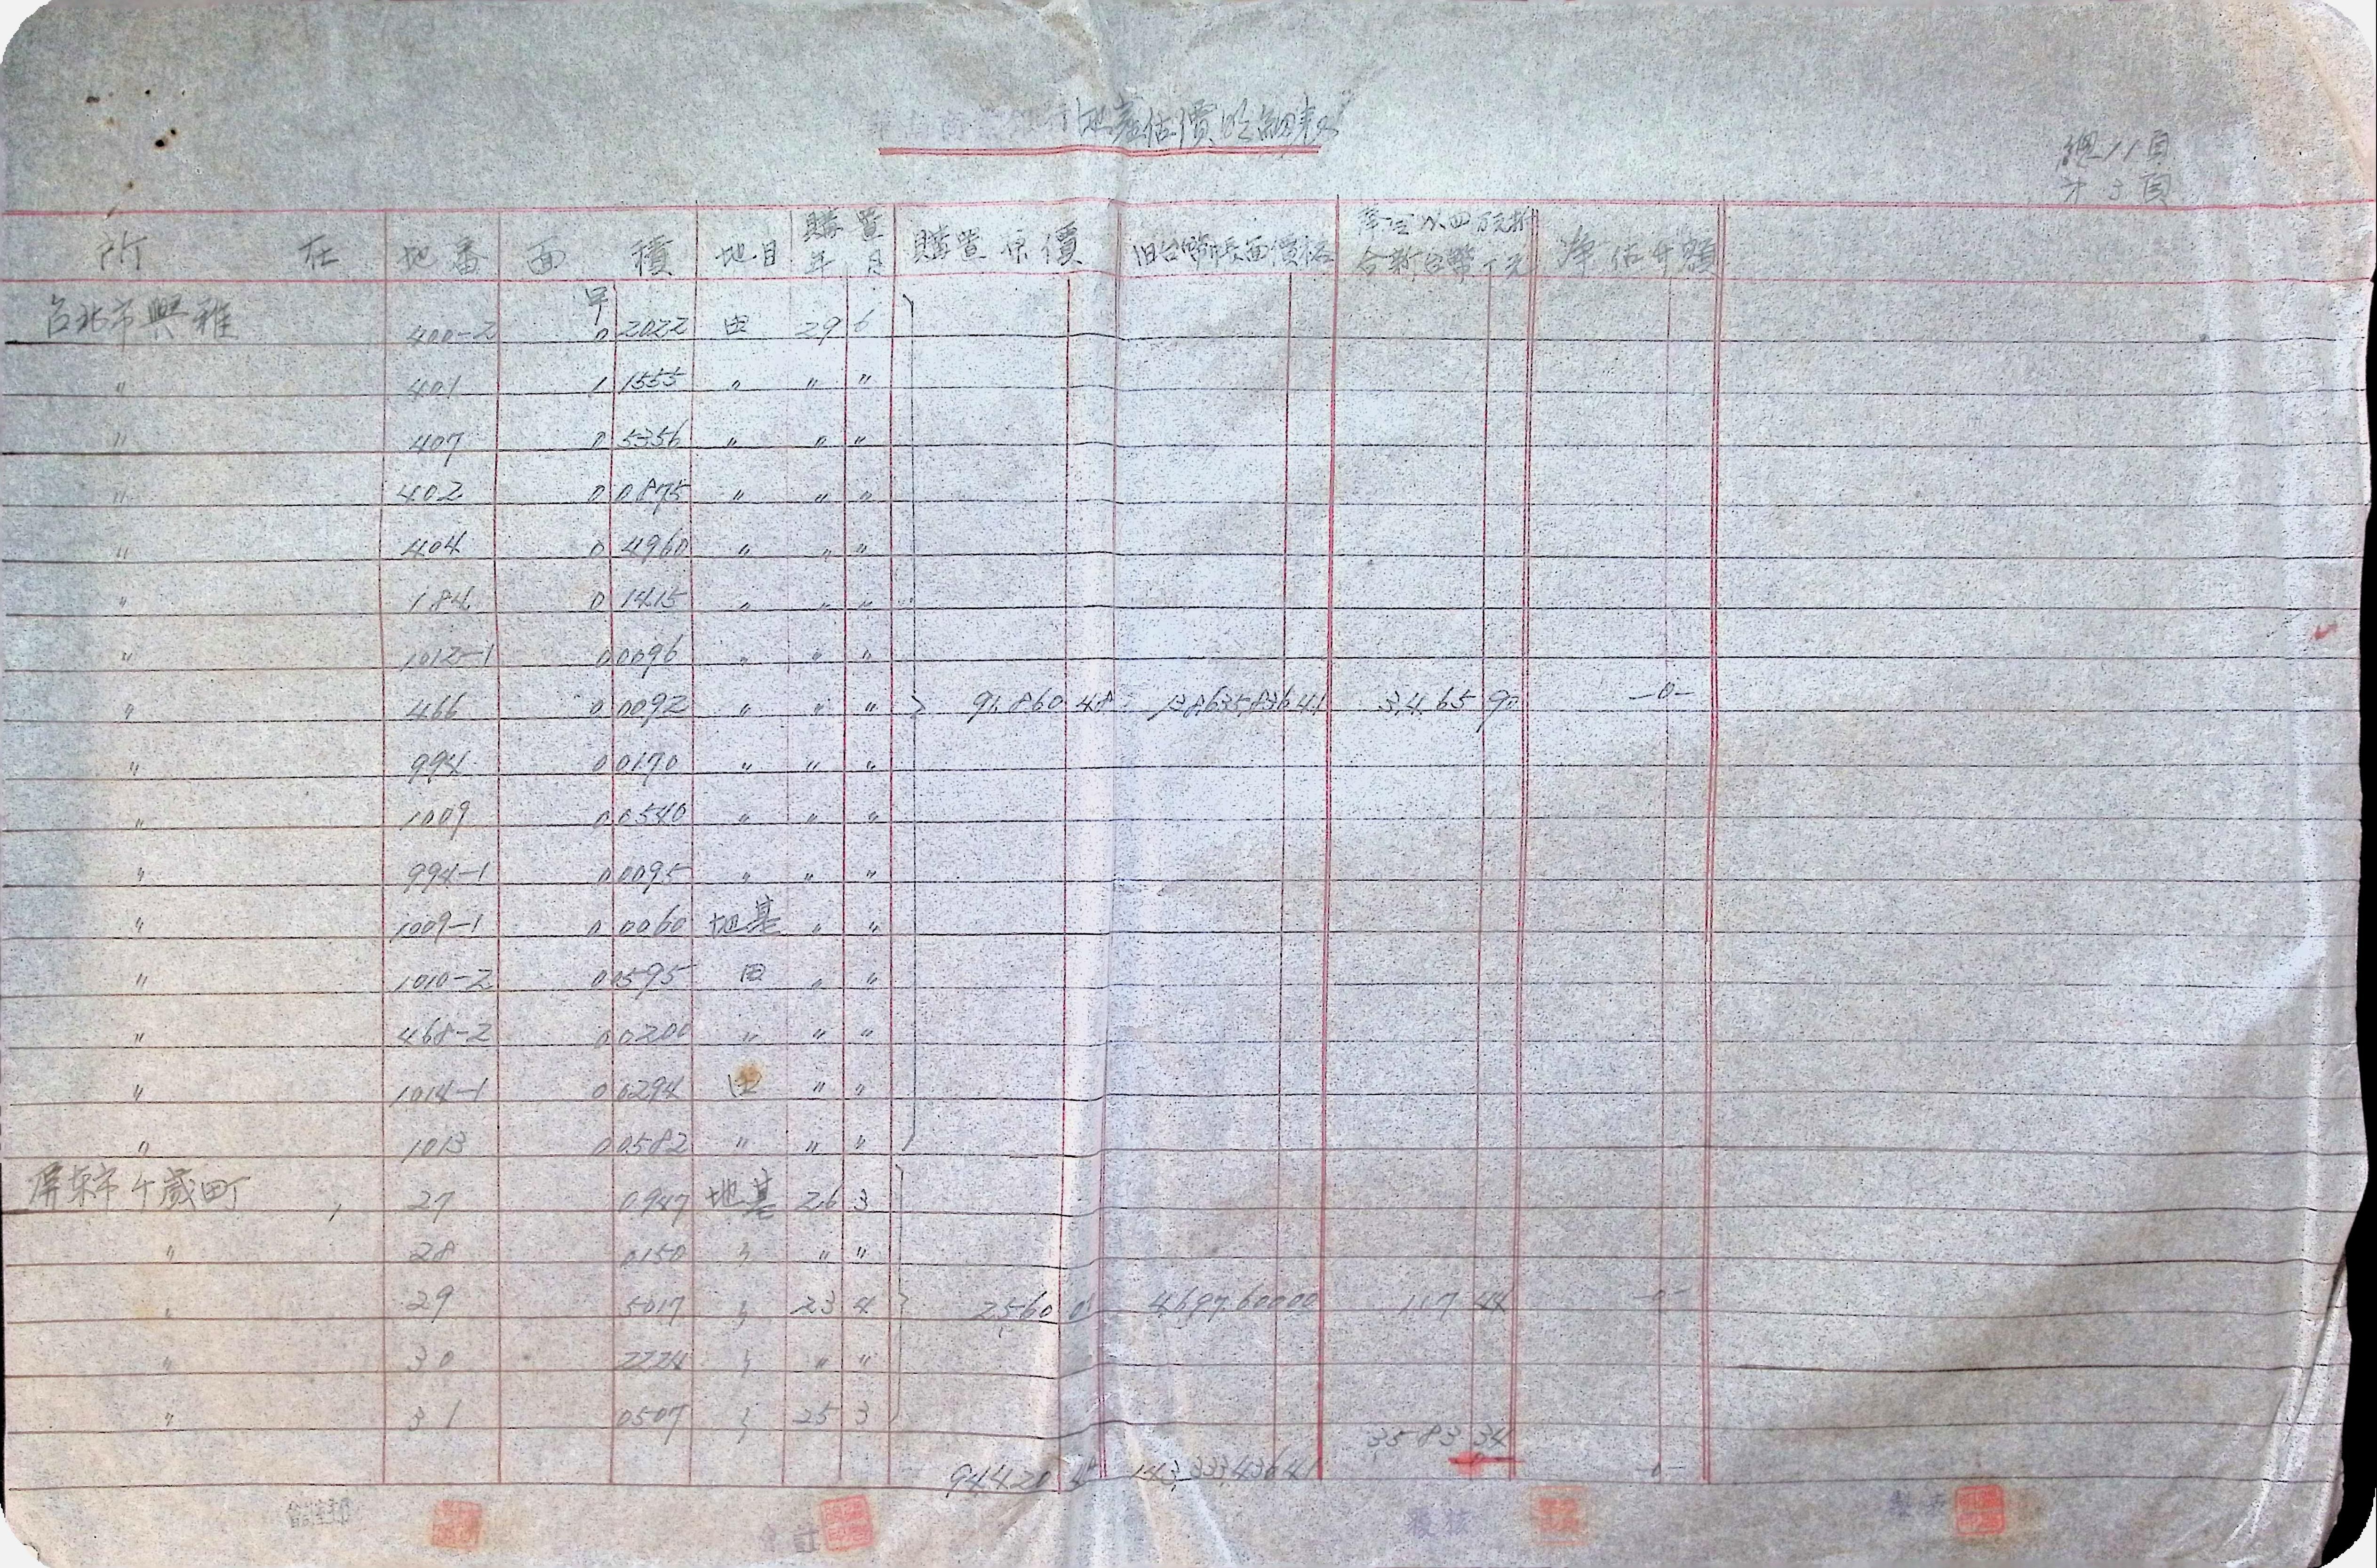 地產估價明細表
總11頁
才3頁
所 在 地番 面 積 地目 購置年月 購置原價 旧台幣帳面價格 奉令以四万元折合新台幣一元 淨估升額
台北市興雅 400-2 甲 0 2022 田 29 6
〃 401 1 1555 〃 〃 〃
〃 407 0 5356 〃 〃 〃
〃 402 0 0875 〃 〃 〃
〃 404 0 4960 〃 〃 〃
〃 184 0 1415 〃 〃 〃
〃 1012-1 0 0096 〃 〃 〃
〃 466 0 0092 〃 〃 〃 91,860 48 138,635,836 41 3,465 90 -0-
〃 994 0 0170 〃 〃 〃
〃 1009 0 0540 〃 〃 〃
〃 994-1 0 0095 〃 〃 〃
〃 1009-1 0 0060 地基 〃 〃
〃 1010-2 0 0595 田 〃 〃
〃 468-2 0 0200 〃 〃 〃
〃 1014-1 0 0294 〃 〃
〃 1013 0 0582 〃 〃 〃
屏東市千歲町 27 0947 地基 26 3
〃 28 0150 〃 〃 〃
〃 29 5017 〃 23 4 2,560 0 4,697,600 00 117 44 -0-
〃 30 2224 〃 〃 〃
〃 31 0507 〃 25 3
3,583 34
94,420 48 143,333,436 41 -0-
會計
覆核
製表